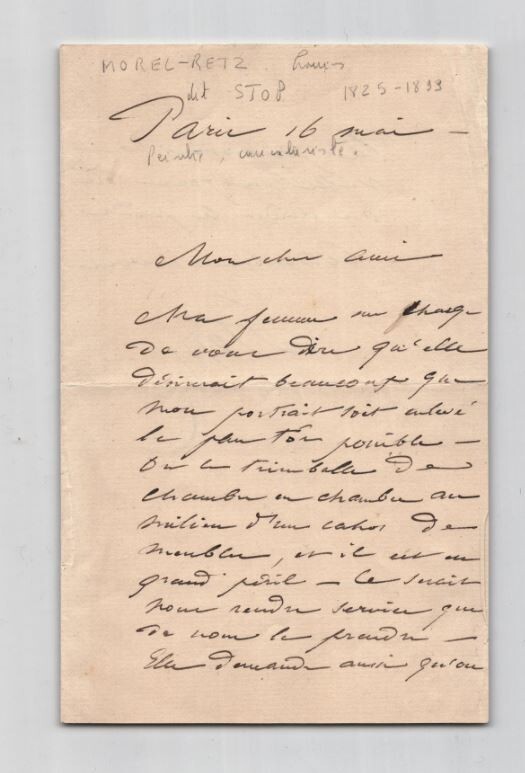 MOREL-RETZ Louis
dit STOP 1825-1899
Paris 16 mai -
Peintre, caricaturiste.
Mon cher ami
Ma femme me charge
de vous dire qu'elle
désirerait beaucoup que
mon portrait soit enlevé
le plus tôt possible -
On le trimballe de
chambre en chambre au
milieu d'un cahos de
meubles, et il est en
grand péril - Ce serait
nous rendre service que
de nous le prendre -
Elle demande aussi qu'on